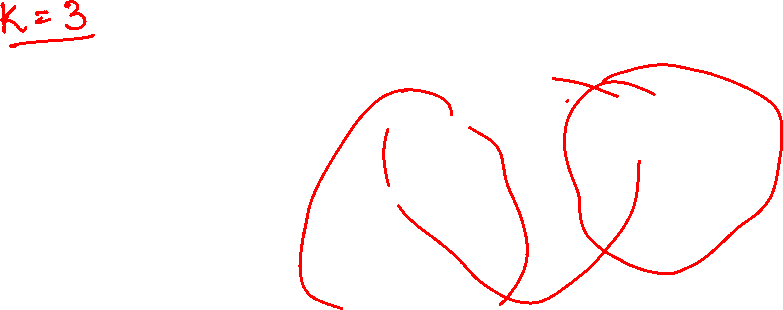 K = 3